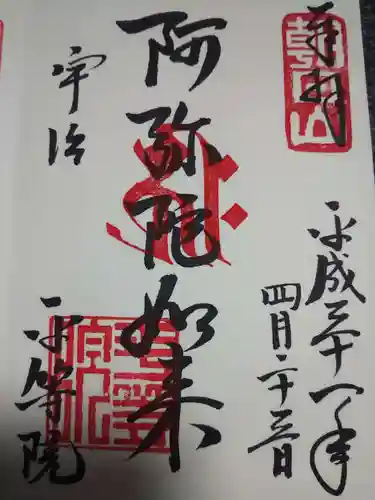 奉拝
平成三十一年
四月二十三日
阿弥陀如来
宇治
平等院
朝日山